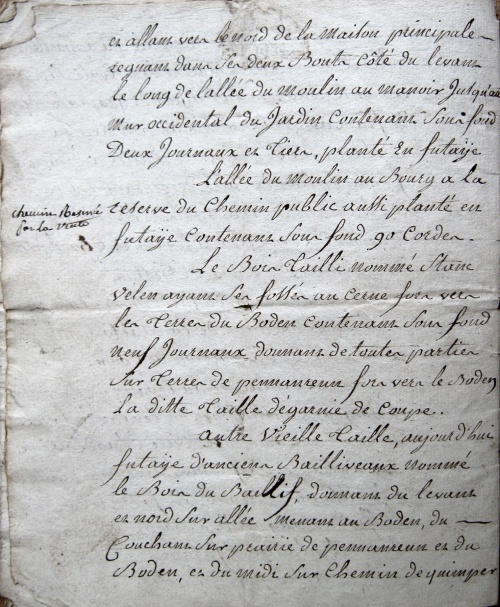 et allant vers le nord de la maison principale
regnant dans ses deux Bouts côté du levant
le long de lallée du moulin au manoir Jusqu'au
mur occidental du Jardin contenant sous fond
Deux Journaux et tiers, planté En futaije
L'allée du moulin au Bourg a la
reserve du Chemin public aussi planté en
futaije contenant sous fond 90 cordes.
chemin Reservé
par la vente
Le Bois taillis nommé Stanc
velen ayant ses fossés au cerne fors vers
les terres du Boden contenant sous fond
neuf Journaux donnant de toutes parties
sur terres de pennanreun fors vers le Boden
la ditte taille dégarnie de coupe.
autre vieille taille, aujourd'hui
futaije d'anciens Bailliveaux nommé
le Bois du Baillif, donnant du levant
et nord sur allée menant au Boden, du
Couchant sur prairie de pennanreun et du
Boden, et du midi sur chemin de quimper